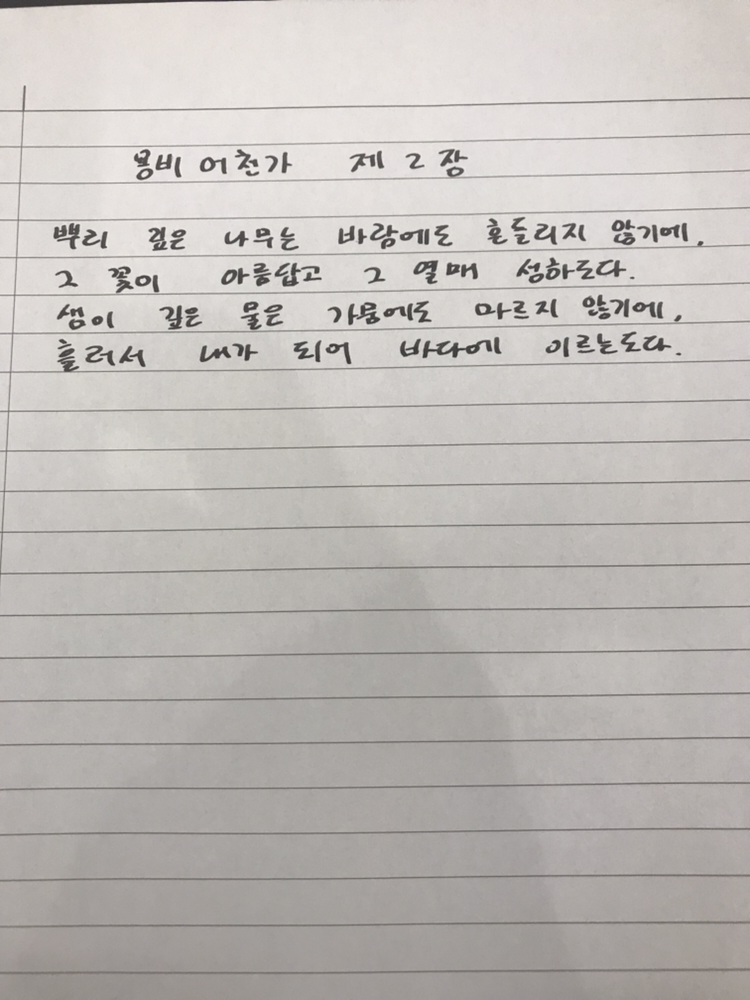 용비어천가 제 2 장
뿌리 깊은 나무는 바람에도 흔들리지 않기에,
그 꽃이 아름답고 그 열매 성하도다.
샘이 깊은 물은 가뭄에도 마르지 않기에,
흘러서 내가 되어 바다에 이르는도다.